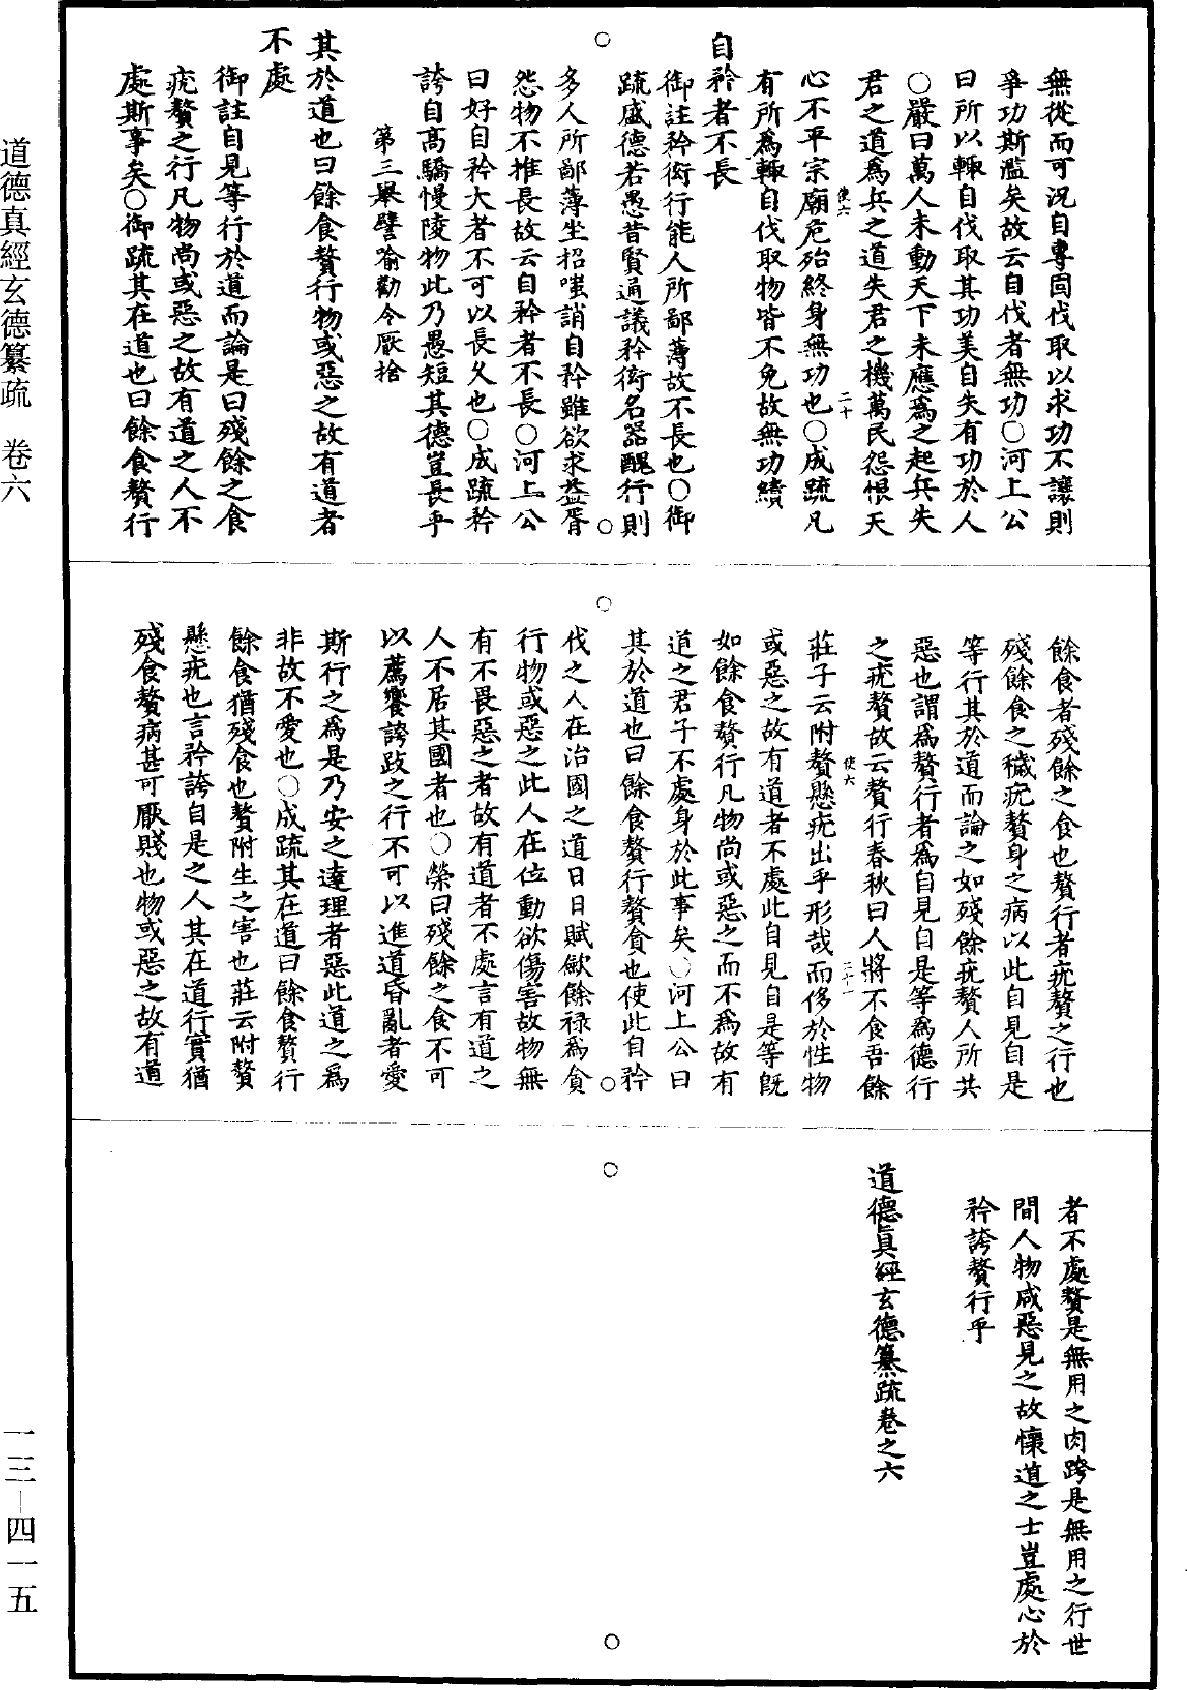 無從而可況自專固伐取以求功不讓則
爭功斯濫矣故云自伐者無功○河上公
曰所以輒自伐取其功美自失有功於人
○嚴曰萬人未動天下未應爲之起兵失
君之道爲兵之道失君之機萬民怨恨天
使六 二十
心不平宗廟危殆終身無功也○成疏凡
有所爲輒自伐取物皆不免故無功績
自矜者不長
御註矜衒行能人所鄙薄故不長也○御
疏盛德若愚昔賢通議矜衒名器醜行則
多人所鄙薄坐招嗤誚自矜雖欲求益胥
怨物不推長故云自矜者不長○河上公
曰好自矜大者不可以長久也○成疏矜
誇自高驕慢陵物此乃愚短其德豈長乎
第三舉譬喻勸令厭捨
其於道也曰餘食贅行物或惡之故有道者
不處
御註自見等行於道而論是曰殘餘之食
疣贅之行凡物尚或惡之故有道之人不
處斯事矣○御疏其在道也曰餘食贅行
餘食者殘餘之食也贅行者疣贅之行也
殘餘食之穢疣贅身之病以此自見自是
等行其於道而論之如殘餘疣贅人所共
惡也謂爲贅行者爲自見自是等爲德行
之疣贅故云贅行春秋曰人將不食吾餘
使六 二十一
莊子云附贅懸疣出乎形哉而侈於性物
或惡之故有道者不處此自見自是等既
如餘食贅行凡物尚或惡之而不爲故有
道之君子不處身於此事矣○河上公曰
其於道也曰餘食贅行贅貪也使此自矜
伐之人在治國之道日日賦斂餘祿爲貪
行物或惡之此人在位動欲傷害故物無
有不畏惡之者故有道者不處言有道之
人不居其國者也○榮曰殘餘之食不可
以薦饗誇跂之行不可以進道昏亂者愛
斯行之爲是乃安之達理者惡此道之爲
非故不愛也○成疏其在道曰餘食贅行
餘食猶殘食也贅附生之害也莊云附贅
懸疣也言矜誇自是之人其在道行實猶
殘食贅病甚可厭賤也物或惡之故有道
者不處贅是無用之肉跨是無用之行世
間人物咸惡見之故懷道之士豈處心於
矜誇贅行乎
道德真經玄德纂疏卷之六
道德真經玄德纂疏 卷六
一三—四一五